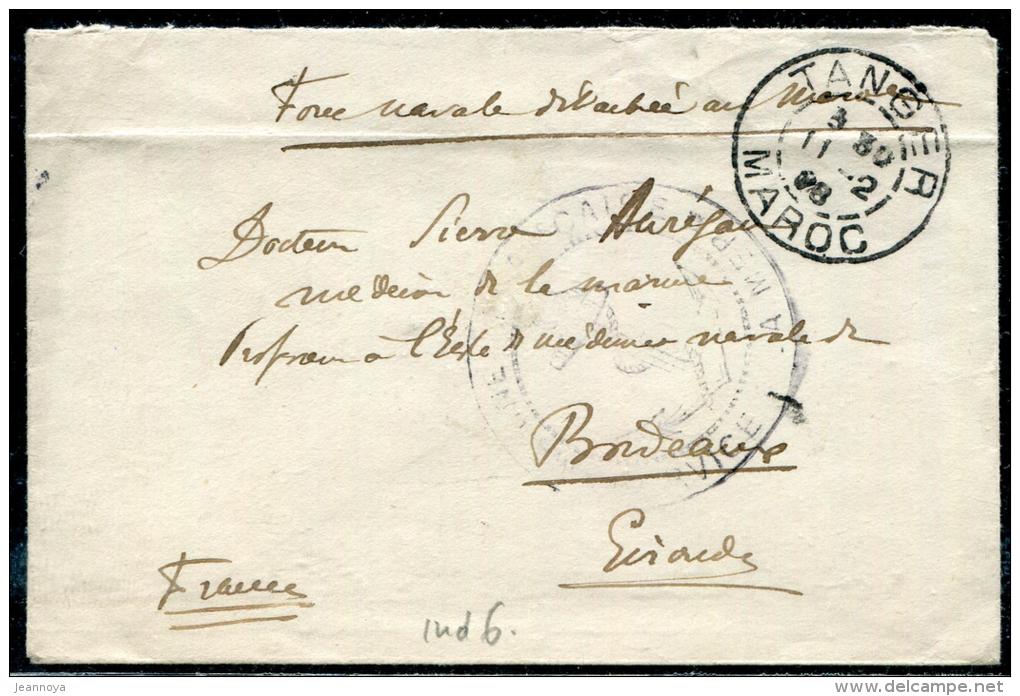 Force navale détachée au Maroc
TANGER
3 30
11 -2
08
MAROC
Docteur Pierre Aurégan
médecin de la marine
Professeur à l'École de médecine navale de
Bordeaux
Gironde
France
ind 6.
MER
SERVICE A LA
jeannoya
delcampe.net